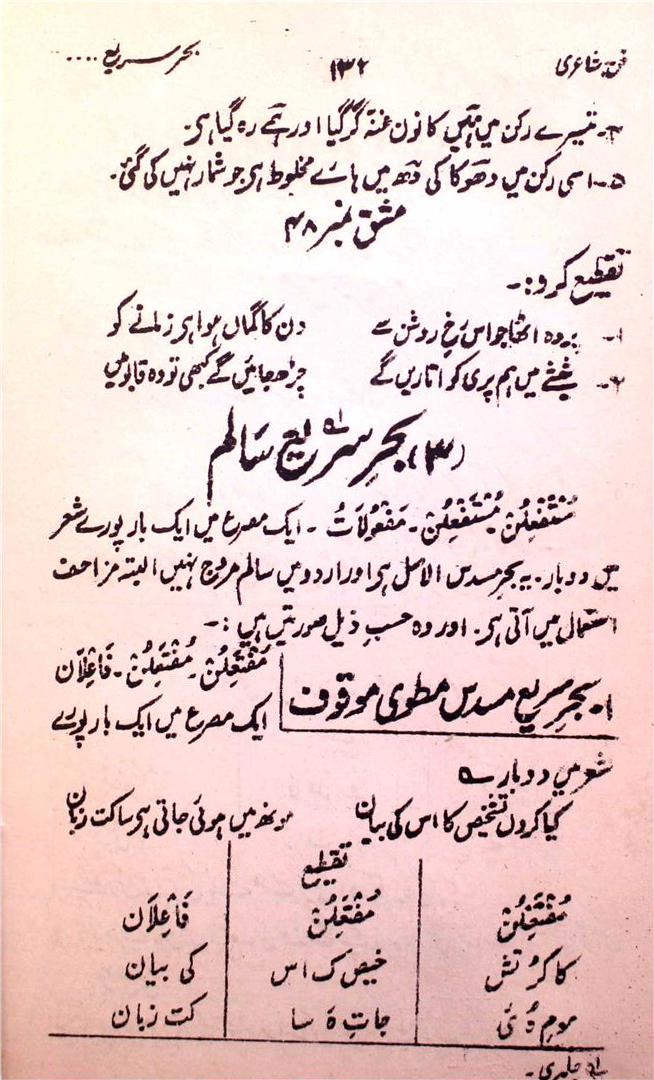 فن شاعری ۱۳۲ بحر سریع ....
۴- تیسرے رکن میں ہمیں کا نون غنہ گر گیا اور ہمے رہ گیا ہی۔
۵- اسی رکن میں دھوکا کی دھ میں ہائے مخلوط ہی جو شمار نہیں کی گئی۔
مشق نمبر ۴۸
تقطیع کرو:-
۱- پردہ اٹھا جو اس رخِ روشن سے دن کا گماں ہوا ہی زمانے کو
۲- شیشے میں ہم پری کو اتاریں گے چڑھ جائیں گے کبھی تو وہ قابو میں
(۳) بحرِ سریع سالم
مُسْتَفْعِلُنْ مُسْتَفْعِلُنْ۔ مَفْعُولَاتُ ۔ ایک مصرع میں ایک بار پورے شعر
میں دو بار۔ یہ بحر مسدس الاصل ہی اور اردو میں سالم مروج نہیں البتہ مزاحف
استعمال میں آتی ہی۔ اور وہ حسبِ ذیل صورتیں ہیں :-
۱۔ بحرِ سریع مسدس مطوی موقوف
مُفْتَعِلُنْ۔ مُفْتَعِلُنْ۔ فَاعِلَان
ایک مصرع میں ایک بار پورے
شعر میں دو بار ؎
کیا کروں تشخیص کا اس کی بیان مونھ میں ہوئی جاتی ہی ساکت زبان
تقطیع
مُفْتَعِلُنْ مُفْتَعِلُنْ فَاعِلَان
کا کرُ تش خیص ک اس کی بیان
موم ہُ ئی جاتِ ہَ سا کت زبان
لہ جلدی۔